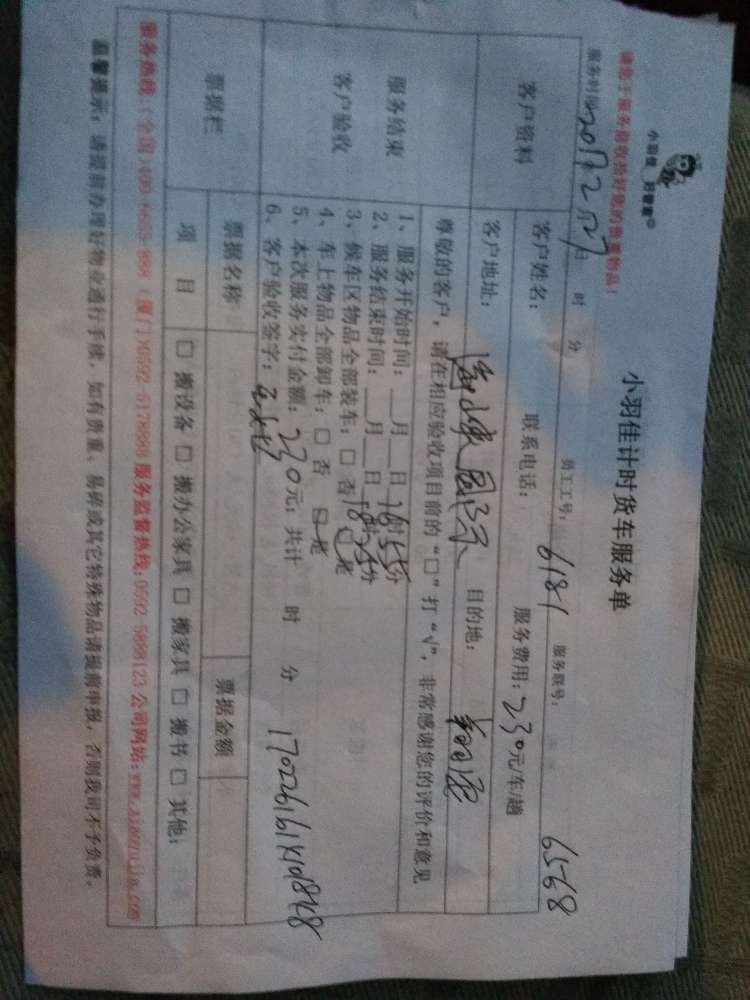 小羽佳 好管家
请您于服务前收拾好您的贵重物品！
小羽佳计时货车服务单
服务时间：2017年2月27日 时 分 员工工号：6181 服务联号： 6568
客户资料
客户姓名： 联系电话： 服务费用：230元/车/趟
客户地址： 目的地：
服务结束
客户验收
尊敬的客户，请在相应验收项目前的“□”打“√”，非常感谢您的评价和意见
1、服务开始时间：__月__日16时55分
2、服务结束时间：__月__日18时25分
3、候车区物品全部装车：□否 □是
4、车上物品全部卸车：□否 □是
5、本次服务实付金额：230元；共计 时 分
6、客户验收签字：
票据栏
票据名称 票据金额
项 目 □搬设备 □搬办公家具 □搬家具 □搬书 □其他：
服务热线：(全国)400-6655-888 (厦门)0592-5178888 服务监督热线:0592-5888123 公司网站:www.xiaoyujia.com
温馨提示：请提前办理好物业通行手续，如有贵重、易碎或其它特殊物品请提前申报，否则我司不予负责。